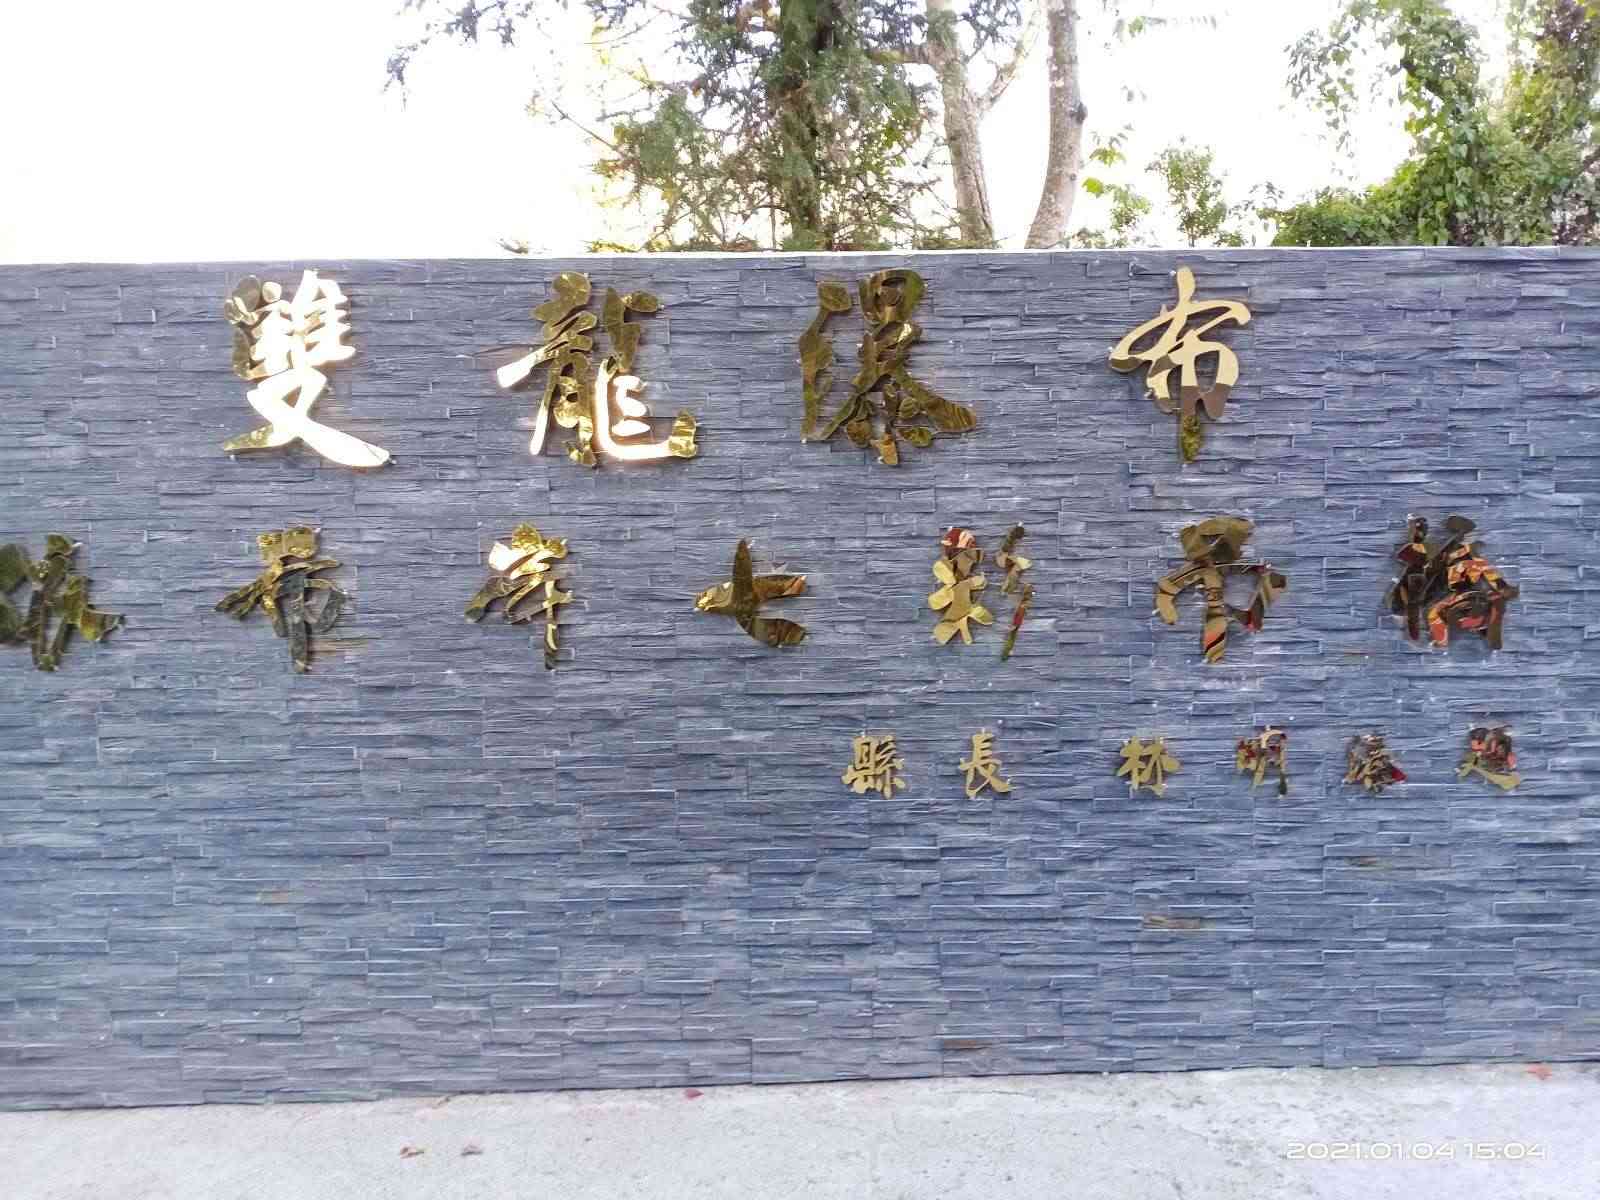 雙龍瀑布
岸七彩吊橋
縣長 林明溱題
2021.01.04 15:04